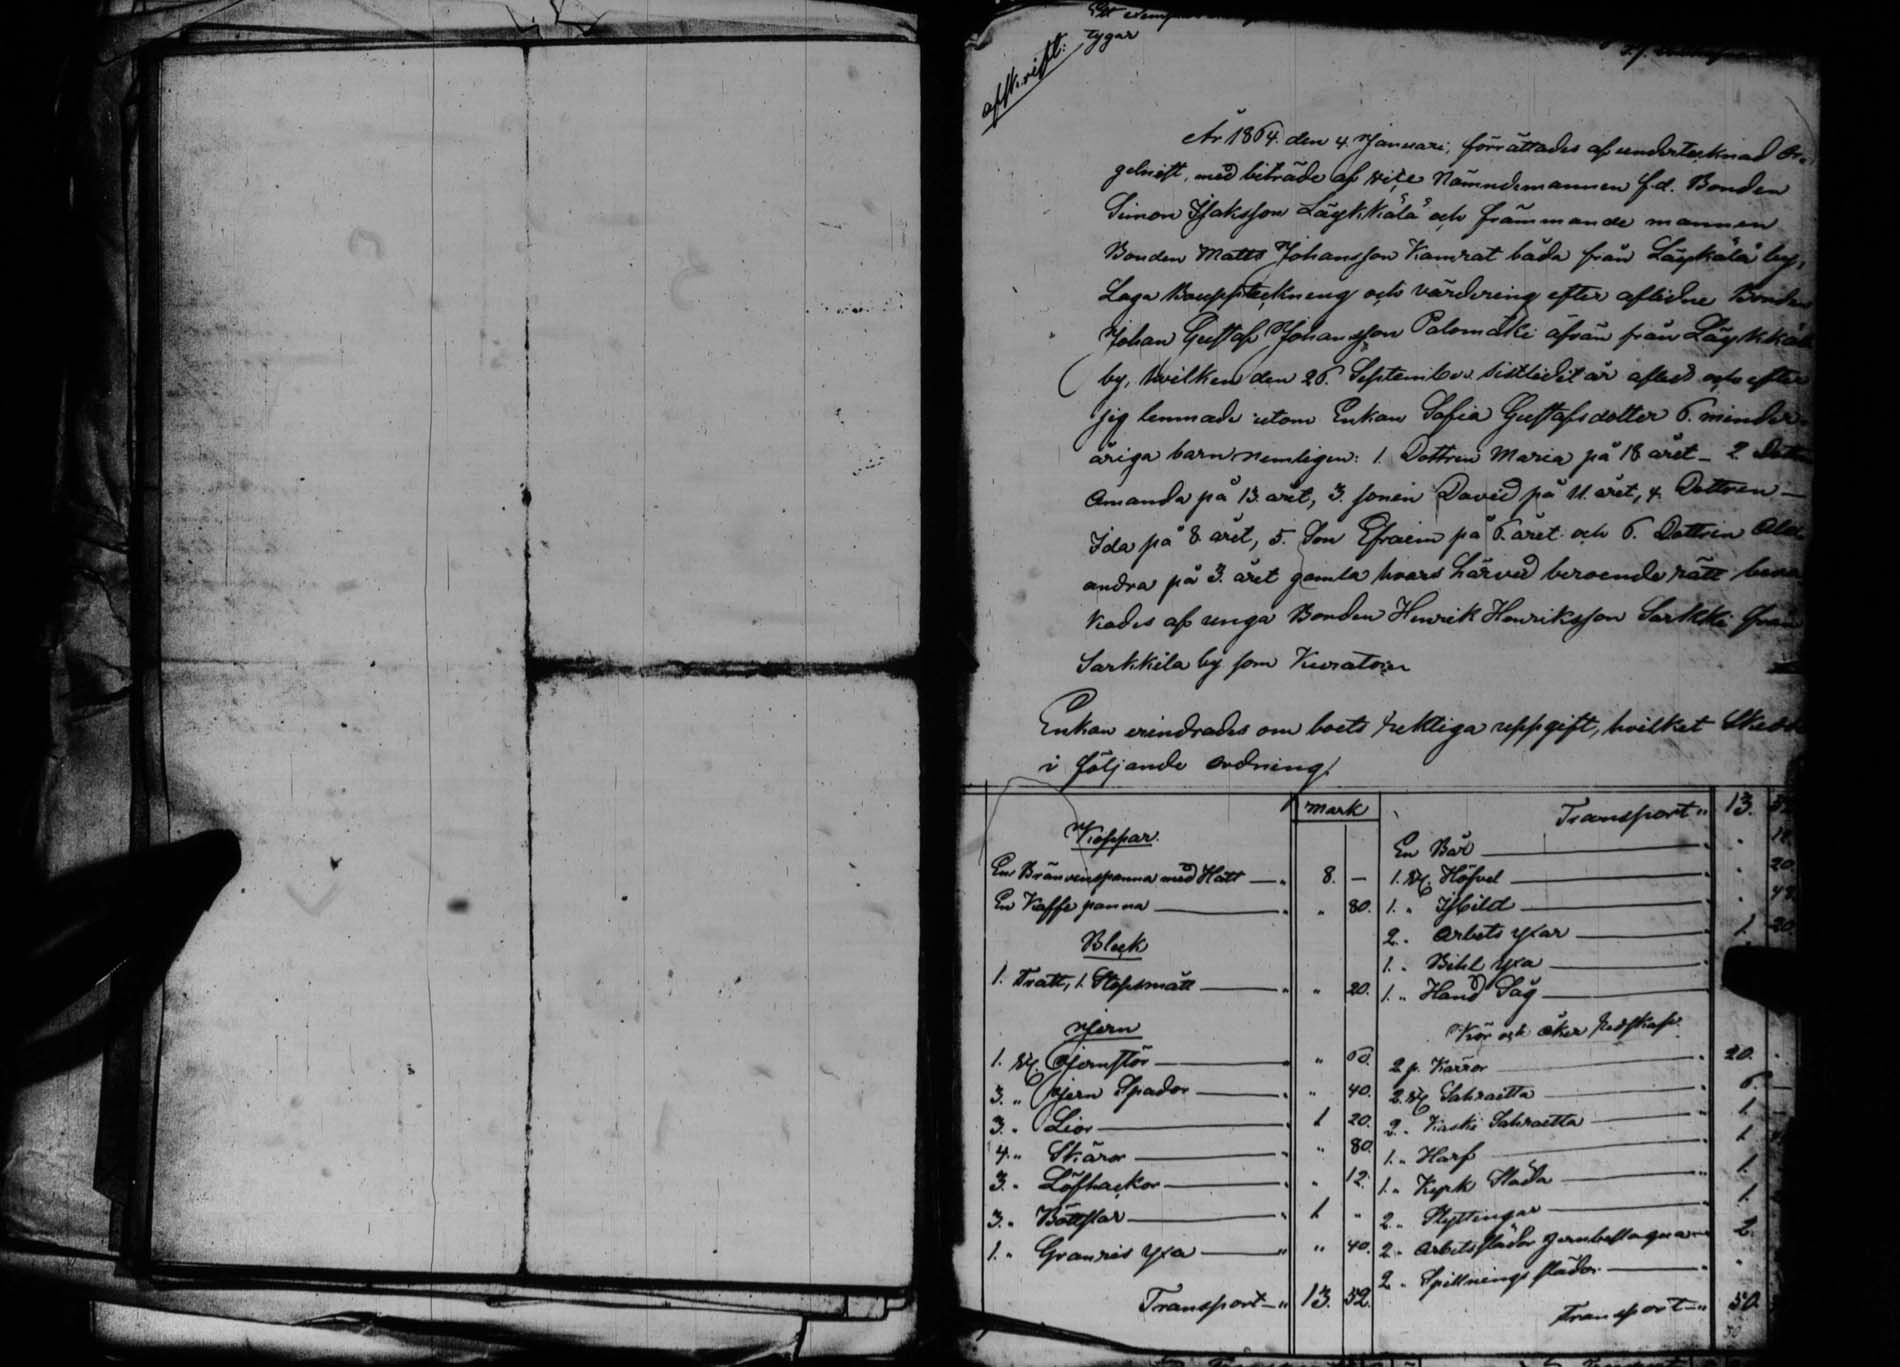 tygar
afskrift:
År 1864. den 4. Januari, förrättades af undertecknad Or-
gelnist, med biträde af vice Nämndemannen f.d. Bonden
Simon Isaksson Läykkälä och främmande mannen
Bonden Matts Johansson Kamrat båda från Läykälä by,
Laga Bouppteckneng och värdering efter aflidne Bonden
Johan Gustaf Johansson Palomäki äfvän från Läykkälä
by, hvilken den 26. September sistledit år afled och efter
sig lemnade utom Enkan Sofia Gustafsdotter 6. minder-
åriga barn nemligen: 1. Dottren Maria på 18 året – 2
Amanda på 13. året, 3. sonen David på 11. året, 4. Dottren –
Ida på 8 året, 5. Son Efraim på 6. året och 6. Dottren
andra på 3. året gamla hvars härved beroende rätt beva
kades af unga Bonden Henrik Henriksson Sarkki från
Sarkkila by som Kurator
Enkan erindrades om boets rektiga uppgift, hvilket Skedde
i följande ordning:
mark
Koppar.
En Bränvenspanna med Hatt — 8. –
En Kaffe panna — " 80.
Bleck
1. Tratt, 1. Stopsmått — " 20.
Jern
1. st. Jernstör — "
3. " Jern Spador — " 40.
3. " Liar — 1 20.
4. " Skäror — " 80.
3. " Löfhackor — " 12.
3. " — 1 "
1. " Granris yxa — " 40.
Transport — " 13. 52.
Transport " 13. 52
En Bår —
1. st. Höfvel — " 20.
1. " — " 48
2. " Arbets yxar — 1. 20
1. " Bihl yxa —
1. " Hand Såg —
Kör och åker Redskap.
2 p. Kärror — 20. "
2. st. Sahraetta — 6. –
2. " Kaski Sahraetta — 1. –
1. " Harf — 1
1. " Kyrk Släda — 1.
2. " Styttingar — 1.
2. " Arbetsslädor jernbeslagna — 2.
2. " Spillnings slädor —
Transport — " 50.